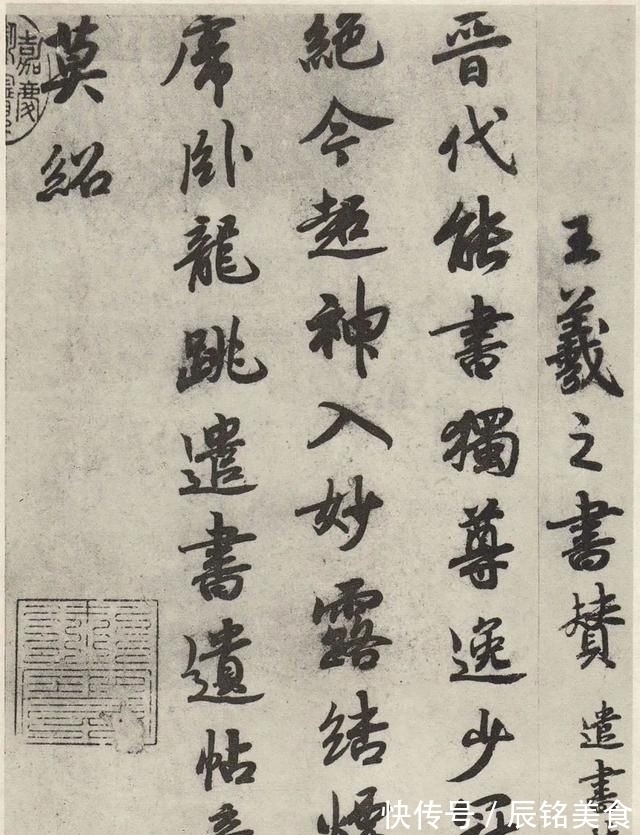 王羲之書贊 遣書
晉代能書獨尊逸少
絕今超神入妙露結
虎臥龍跳遣書遺帖
莫紹
嘉慶
快传号 / 辰铭美食